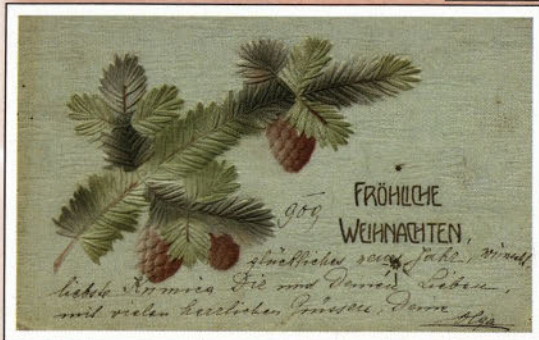 FRÖHLICHE
WEIHNACHTEN,
909
glückliches neues Jahr, wünscht
liebste Dir und Deinen Lieben,
mit vielen herzlichen Grüssen, Deine
Olga